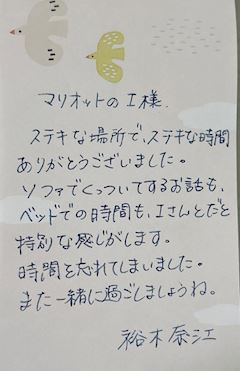 マリオットの I 様
ステキな場所で、ステキな時間
ありがとうございました。
ソファでくっついてするお話も、
ベッドでの時間も、Iさんとだと
特別な感じがします。
時間を忘れてしまいました。
また一緒に過ごしましょうね。
裕木奈江